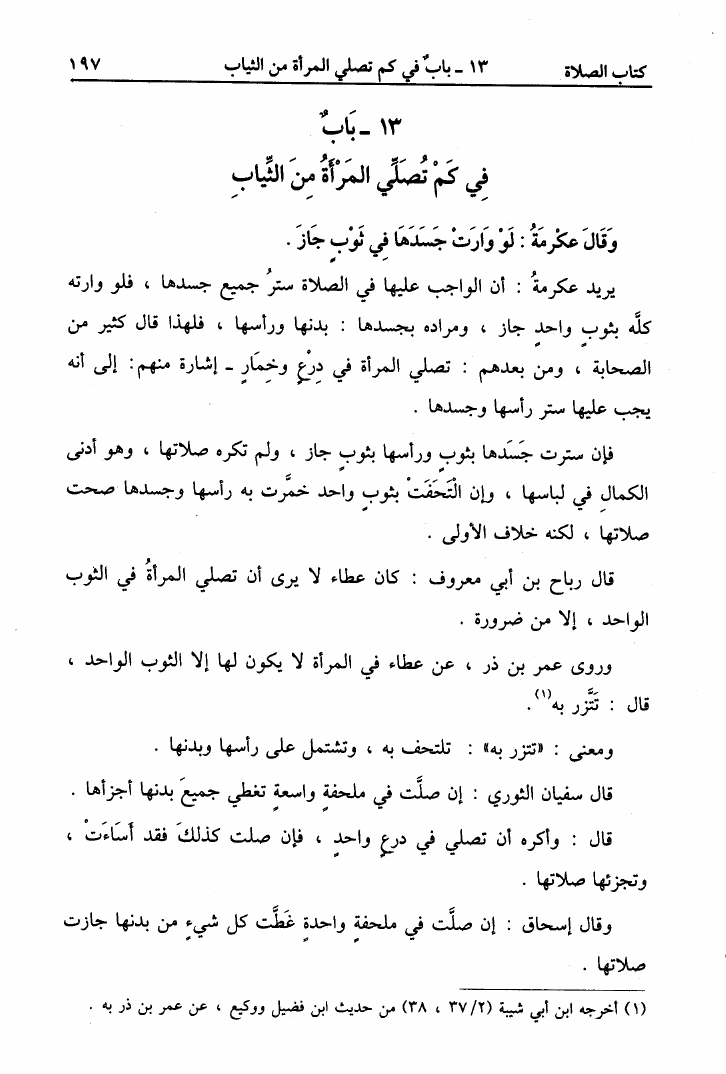 كتاب الصلاة ١٣ ـ بابٌ في كم تصلي المرأة من الثياب ١٩٧
١٣ ـ بَابٌ
فِي كَمْ تُصَلِّي المَرْأَةُ مِنَ الثِّيابِ
وَقَالَ عكْرمَةُ : لَوْ وَارَتْ جَسَدَهَا فِي ثَوْبٍ جَازَ .
يريد عكرمةُ : أن الواجب عليها في الصلاة سترُ جميع جسدها ، فلو وارته
كلَّه بثوبٍ واحدٍ جاز ، ومراده بجسدها : بدنها ورأسها ، فلهذا قال كثير من
الصحابة ، ومن بعدهم : تصلي المرأة في دِرْعٍ وخِمَارٍ ـ إشارة منهم: إلى أنه
يجب عليها ستر رأسها وجسدها .
فإن سترت جَسَدها بثوبٍ ورأسها بثوبٍ جاز ، ولم تكره صلاتها ، وهو أدنى
الكمالِ في لباسها ، وإن الْتَحَفَتْ بثوبٍ واحد خمَّرت به رأسها وجسدها صحت
صلاتها ، لكنه خلاف الأولى .
قال رباح بن أبي معروف : كان عطاء لا يرى أن تصلي المرأةُ في الثوب
الواحد ، إلا من ضرورة .
وروى عمر بن ذر ، عن عطاء في المرأة لا يكون لها إلا الثوب الواحد ،
قال : تَتَّزر به(١).
ومعنى : «تتزر به» : تلتحف به ، وتشتمل على رأسها وبدنها .
قال سفيان الثوري : إن صلَّت في ملحفةٍ واسعةٍ تغطي جميعَ بدنها أجزأها .
قال : وأكره أن تصلي في درعٍ واحدٍ ، فإن صلت كذلكَ فقد أَسَاءَتْ ،
وتجزئها صلاتها .
وقال إسحاق : إن صلَّت في ملحفةٍ واحدةٍ غَطَّت كل شيءٍ من بدنها جازت
صلاتها .
(١) أخرجه ابن أبي شيبة (٣٧/٢ ، ٣٨) من حديث ابن فضيل ووكيع ، عن عمر بن ذر به .